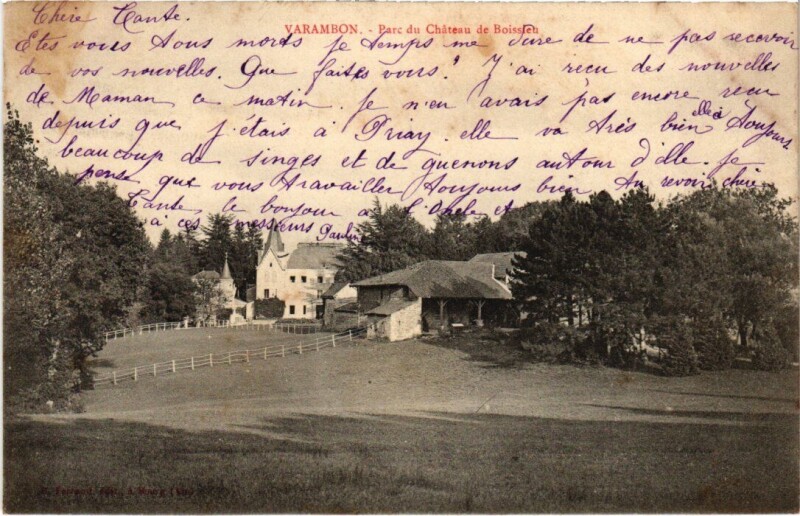 VARAMBON. - Parc du Château de Boissieu
Chère Tante.
Etes vous tous morts je temps me dure de ne pas recevoir
de vos nouvelles. Que faites vous? J'ai recu des nouvelles
de Maman ce matin. Je n'en avais pas encore recu
depuis que j'étais à Priay. elle va très bien elle à toujours
beaucoup de singes et de guenons autour d'elle. Je
pense que vous travailler toujours bien Au revoir chère
Tante, le bonjour à l'Oncle et
à ces messieurs Paulin
édit., à Bourg (Ain)